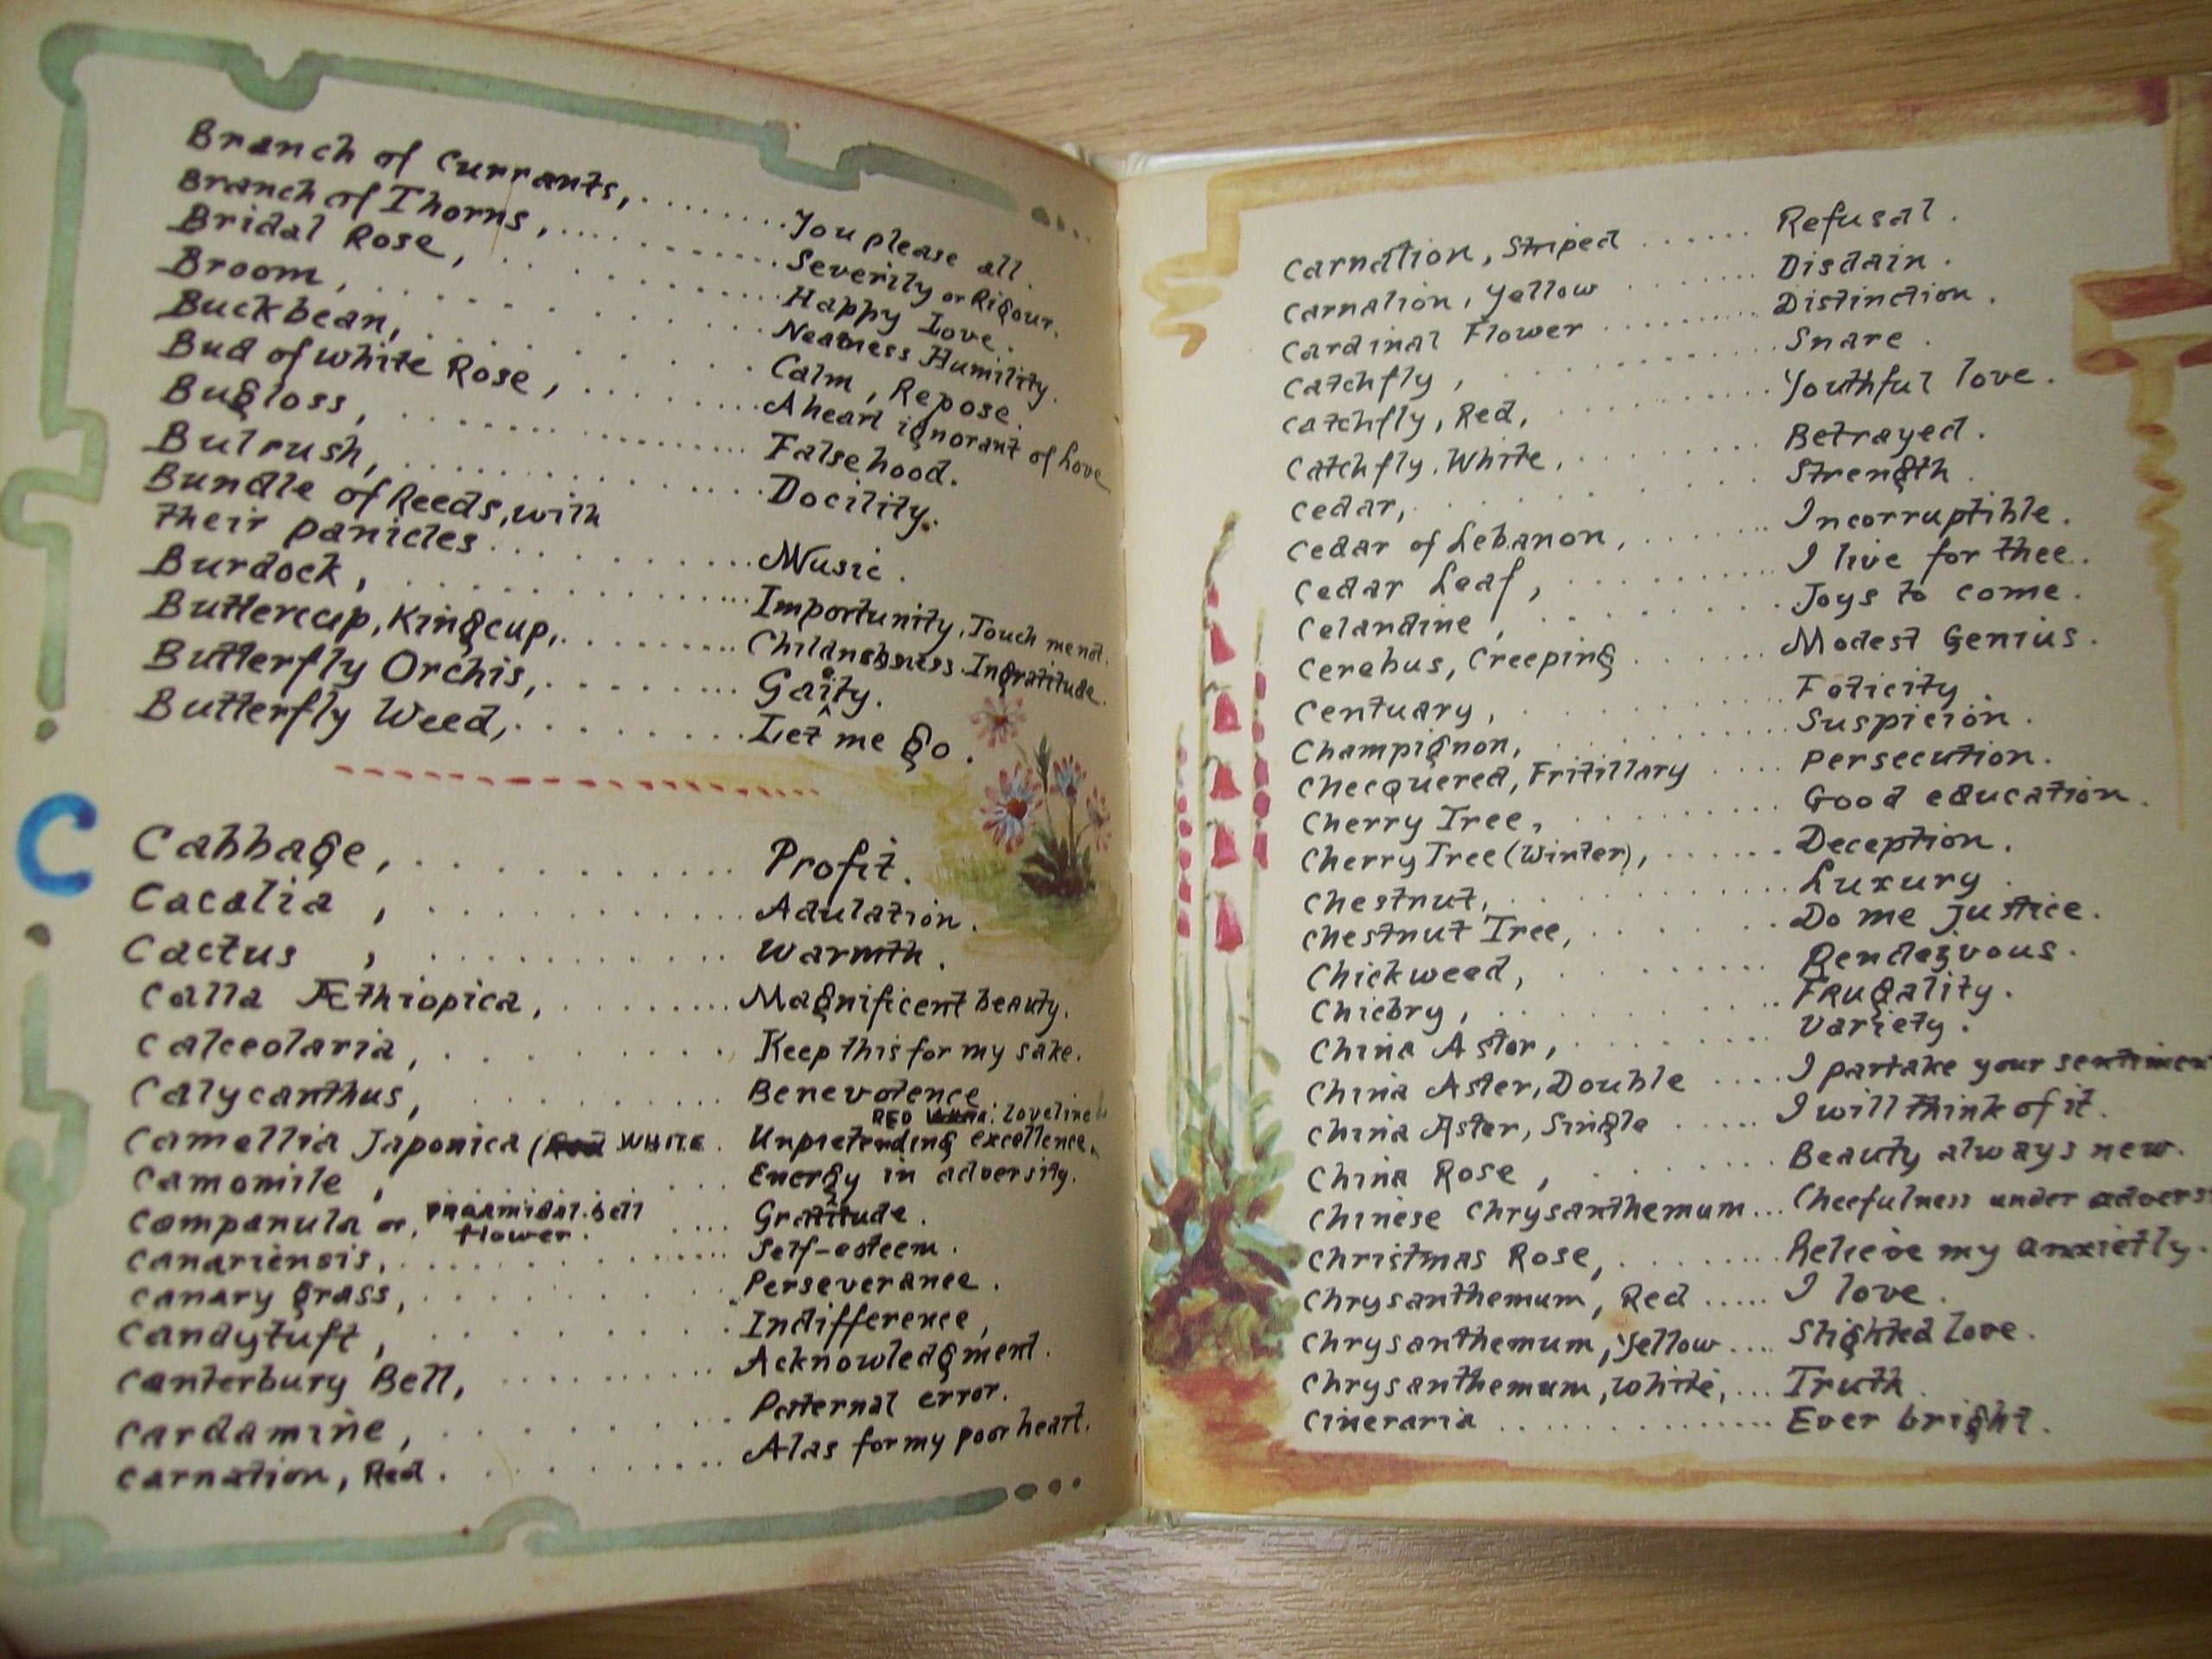 Branch of Currants, ........ You please all.
Branch of Thorns, ............. Severity or Rigour.
Bridal Rose, ............. Happy Love.
Broom, ............. Neatness Humility.
Buckbean, ............. Calm, Repose.
Bud of white Rose, ............. A heart ignorant of Love
Bugloss, ............. Falsehood.
Bulrush, ............. Docility.
Bundle of Reeds, with
their panicles ............. Music.
Burdock, ............. Importunity, Touch me not.
Buttercup, Kingcup, ......... Ingratitude.
Butterfly Orchis, ......... Gaity.
Butterfly Weed, ......... Let me go.
C
Cabbage, ............. Profit.
Cacalia, ............. Adulation.
Cactus, ............. Warmth.
Calla Æthiopica, ......... Magnificent beauty.
Calceolaria, ............. Keep this for my sake.
Calycanthus, ............. Benevolence
RED : Loveline
Camellia Japonica (Red WHITE. Unpretending excellence.
Camomile, ... Energy in adversity.
Campanula or, .... Gratitude.
flower.
Canariensis, ............. Self-esteem.
Canary grass, ............. Perseverance.
Candytuft, ............. Indifference,
Canterbury Bell, ......... Acknowledgment.
Cardamine, ............. Paternal error.
Carnation, Red. ......... Alas for my poor heart.
Carnation, Striped ...... Refusal.
Carnation, Yellow ....... Disdain.
Cardinal Flower .......... Distinction.
Catchfly, ............. Snare.
Catchfly, Red, ......... Youthful love.
Catchfly, White, ......... Betrayed.
Cedar, ............. Strength.
Cedar of Lebanon, ....... Incorruptible.
Cedar Leaf, ......... I live for thee..
Celandine, ......... Joys to come.
Cerebus, Creeping ....... Modest Genius.
Centuary, ......... Foticity.
Champignon, ......... Suspicion.
Checquered, Fritillary .... Persecution.
Cherry Tree, ......... Good education.
Cherry Tree (Winter), ...... Deception.
Chestnut, ......... Luxury.
Chestnut Tree, ....... Do me justice.
Chickweed, ......... Rendezvous.
Chicory, ......... Frugality.
China Aster, ......... Variety.
China Aster, Double .... I partake your sentimen
China Aster, Single ..... I will think of it.
China Rose, ......... Beauty always new.
Chinese Chrysanthemum... Cheefulness under advers
Christmas Rose, ........ Relieve my anxietly.
Chrysanthemum, Red ..... I love.
Chrysanthemum, Yellow .... Slighted love.
Chrysanthemum, White, ... Truth.
Cineraria ............. Ever bright.